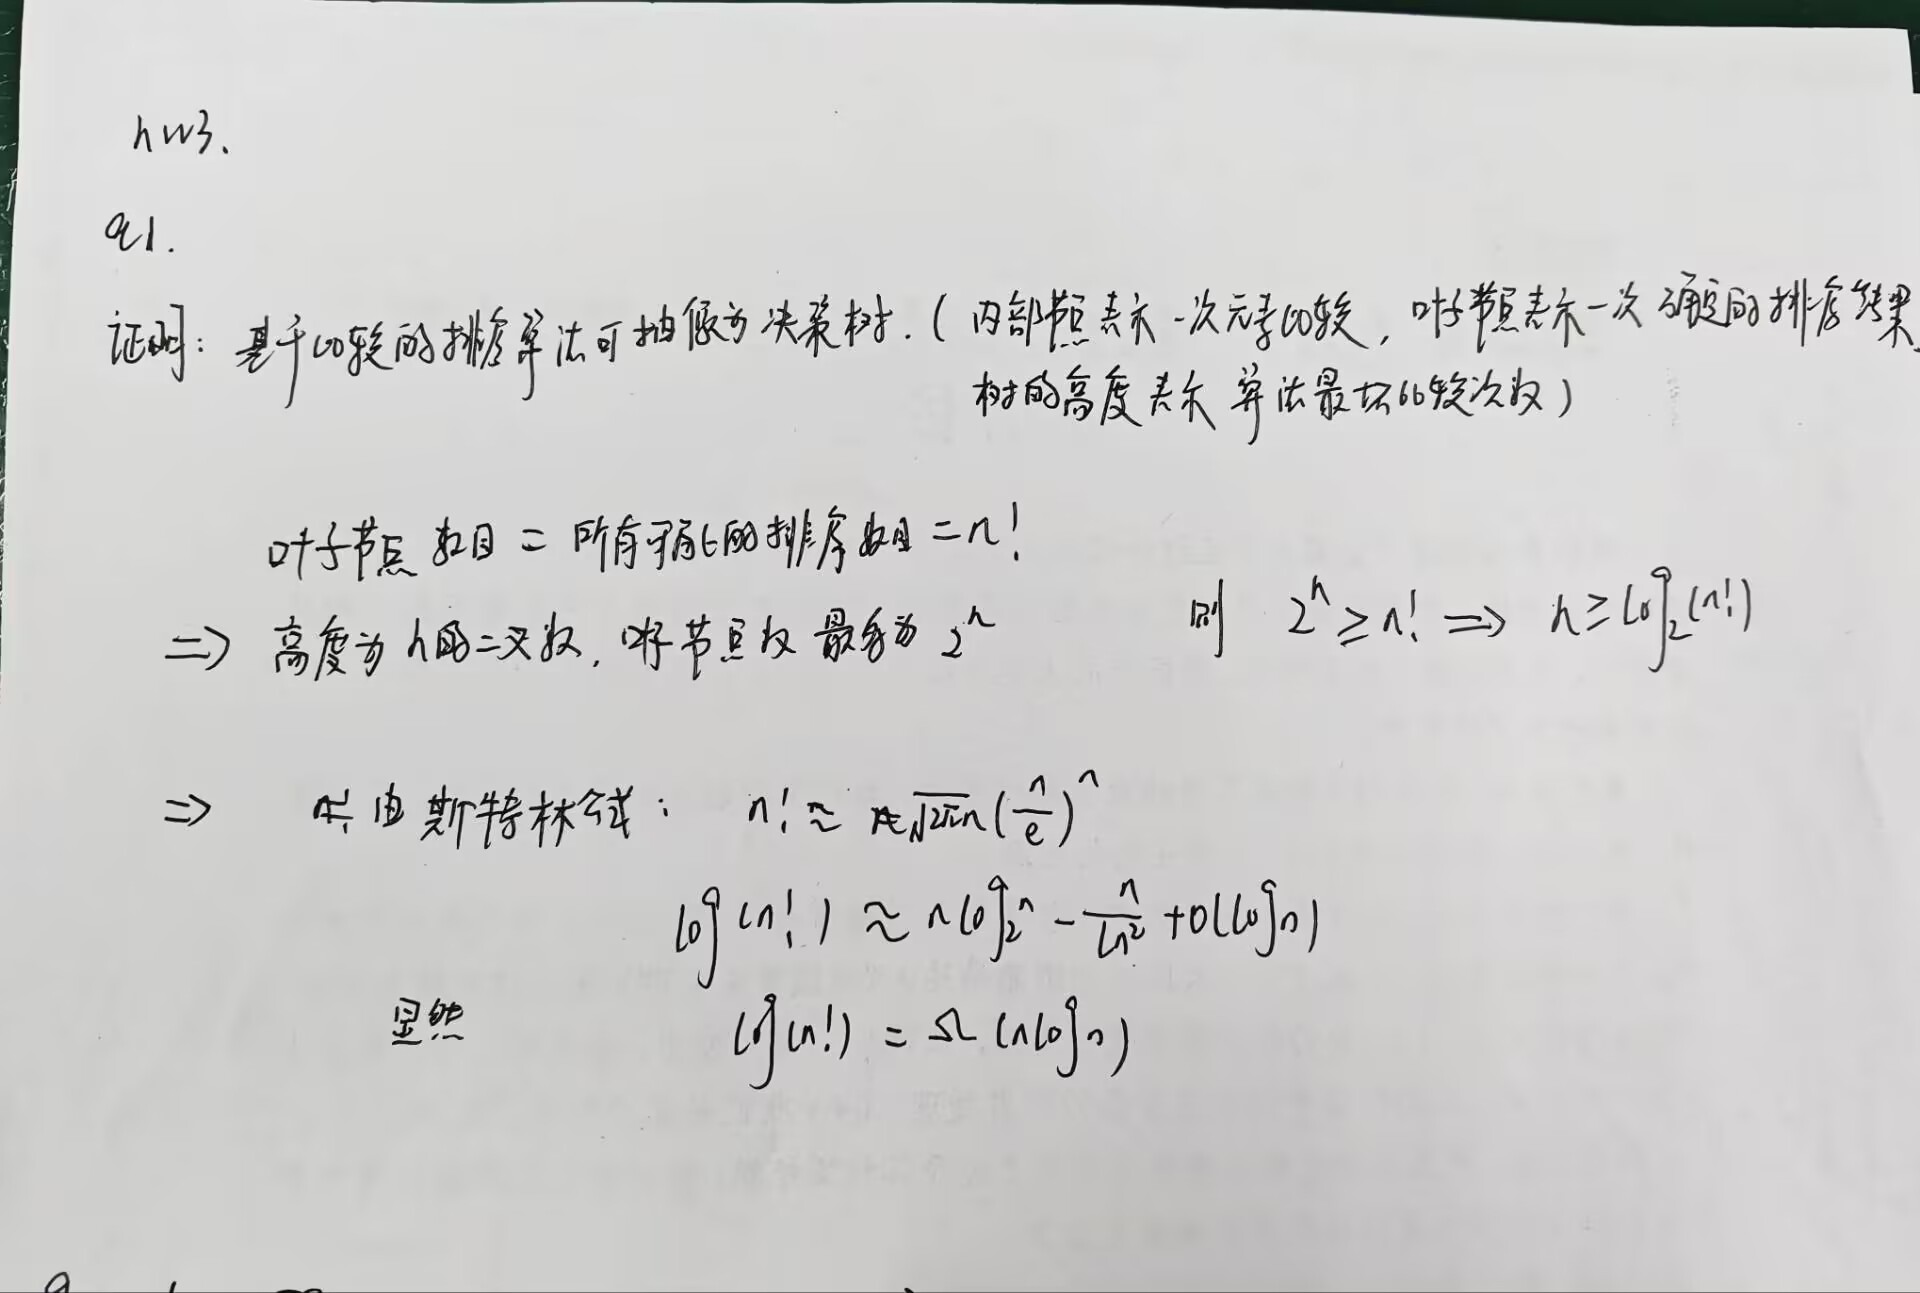 hw3.
Q1.
证明: 基于比较的排序算法可抽像为决策树. ( 内部节点表示一次元素比较, 叶子节点表示一次确定的排序结果,
树的高度表示算法最坏比较次数 )
叶子节点数目 = 所有可能的排序数目 = n!
=> 高度为h的二叉数, 叶子节点数最多为 2^h 则 2^h ≥ n! => h ≥ log_2(n!)
=> 由斯特林公式: n! ≈ √2πn (n/e)^n
log(n!) ≈ n log_2 n - n/ln2 + O(log n)
显然 log(n!) = Ω(n log n)